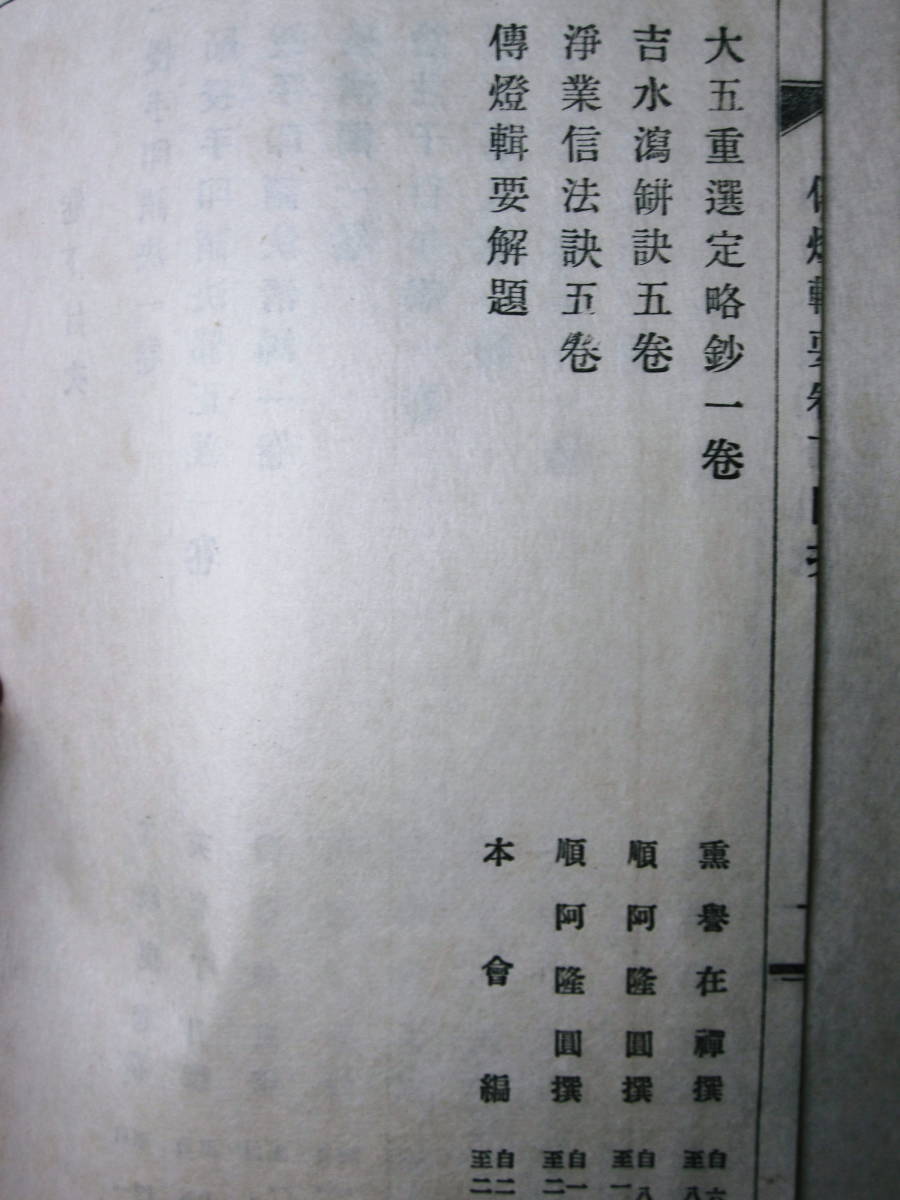 大五重選定略鈔一卷　熏譽在禪撰　自六至八
吉水瀉缾訣五卷　順阿隆圓撰　自八至一
淨業信法訣五卷　順阿隆圓撰　自一至二
傳燈輯要解題　本會編　自二至二